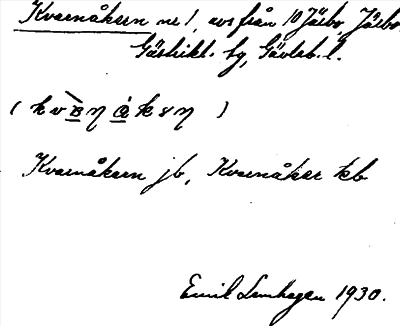 Kvarnåkern nr 1, avs från 10 Jäsbo, Jäsbo
Gästrikl. by, Gävleb. l.
( k v B η å k ɘ η )
Kvarnåkern jb, Kvarnåker kb
Emil Lenhagen 1930.